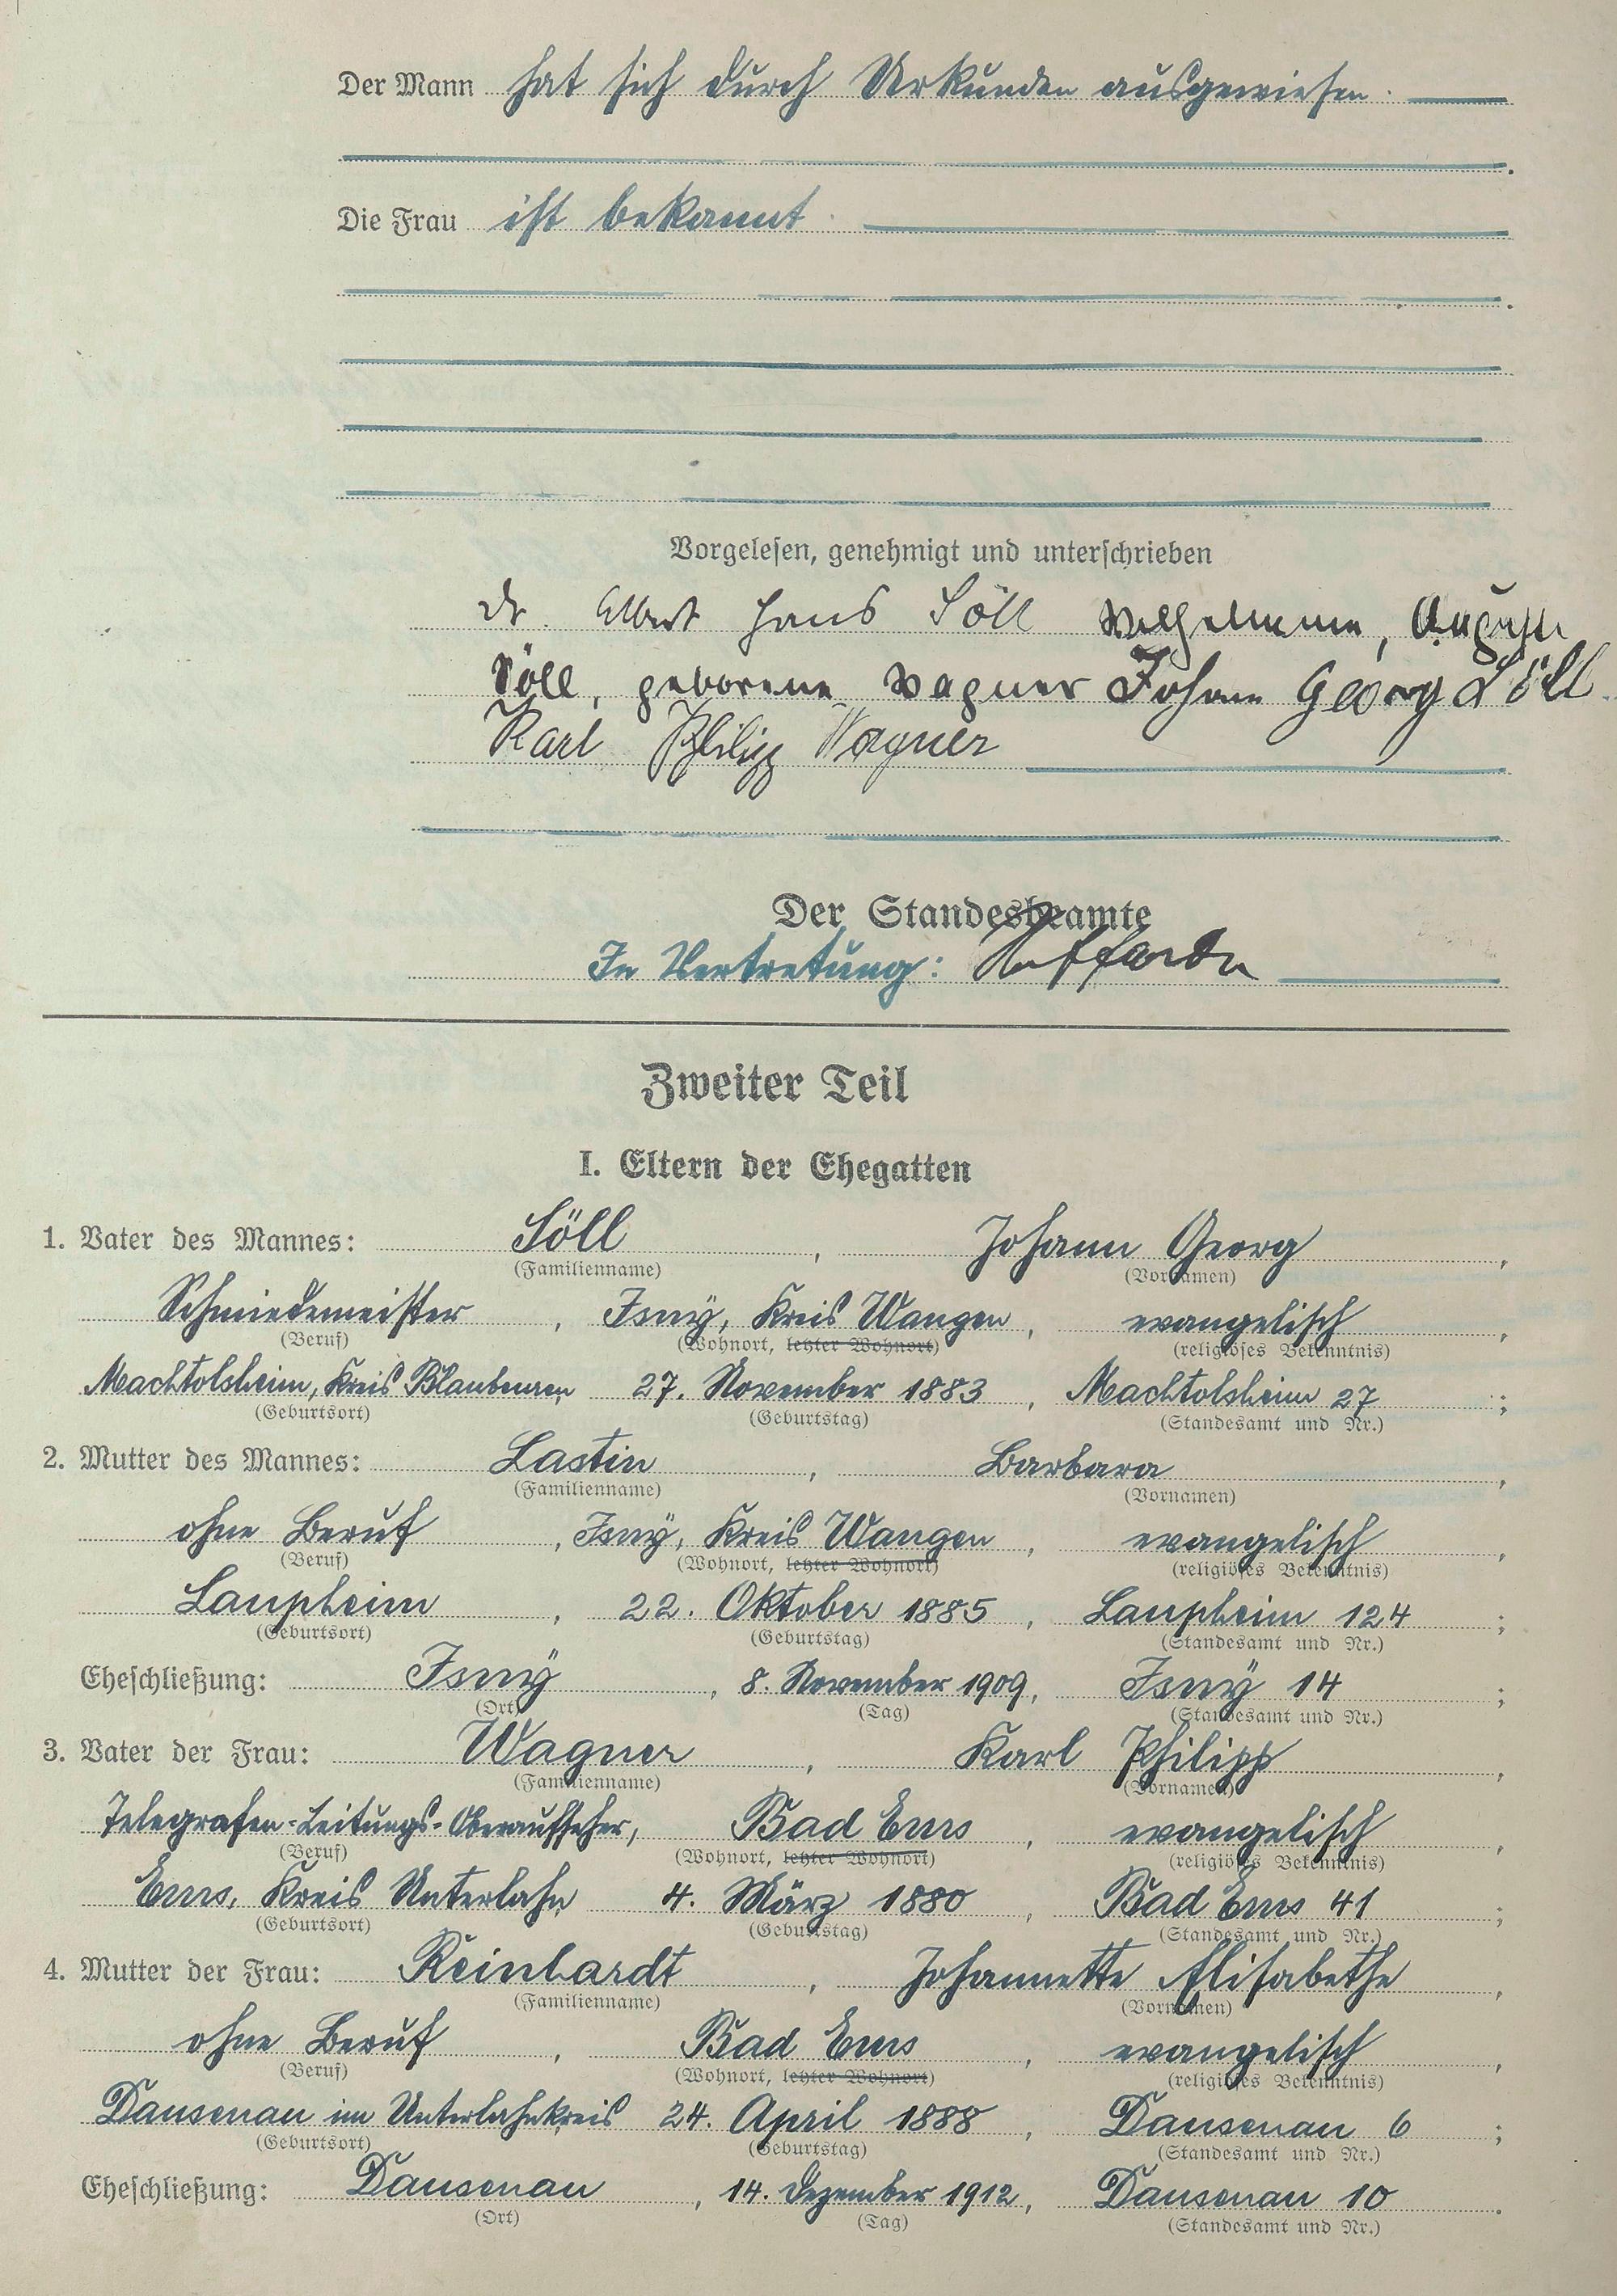 Der Mann hat sich durch Urkunden ausgewiesen.
Die Frau ist bekannt.
Vorgelesen, genehmigt und unterschrieben
Dr. Albert Hans Söll Wilhelmine, Auguste
Söll, geborene Wagner Johann Georg Söll
Karl Philipp Wagner
Der Standesbeamte
In Vertretung:
Zweiter Teil
I. Eltern der Ehegatten
1. Vater des Mannes: Söll, Johann Georg,
(Familienname) (Vornamen)
Schmiedemeister, Isny, Kreis Wangen, evangelisch,
(Beruf) (Wohnort, letzter Wohnort) (religiöses Bekenntnis)
Machtolsheim, Kreis Blaubeuren 27. November 1883, Machtolsheim 27;
(Geburtsort) (Geburtstag) (Standesamt und Nr.)
2. Mutter des Mannes: Lastin, Barbara,
(Familienname) (Vornamen)
ohne Beruf, Isny, Kreis Wangen, evangelisch,
(Beruf) (Wohnort, letzter Wohnort) (religiöses Bekenntnis)
Laupheim, 22. Oktober 1885, Laupheim 124;
(Geburtsort) (Geburtstag) (Standesamt und Nr.)
Eheschließung: Isny, 8. November 1909, Isny 14;
(Ort) (Tag) (Standesamt und Nr.)
3. Vater der Frau: Wagner, Karl Philipp,
(Familienname) (Vornamen)
Telegrafen-Leitungs-Oberaufseher, Bad Ems, evangelisch,
(Beruf) (Wohnort, letzter Wohnort) (religiöses Bekenntnis)
Ems, Kreis Unterlahn, 4. März 1880, Bad Ems 41;
(Geburtsort) (Geburtstag) (Standesamt und Nr.)
4. Mutter der Frau: Reinhardt, Johannette Elisabethe,
(Familienname) (Vornamen)
ohne Beruf, Bad Ems, evangelisch,
(Beruf) (Wohnort, letzter Wohnort) (religiöses Bekenntnis)
Dausenau im Unterlahnkreis 24. April 1888, Dausenau 6;
(Geburtsort) (Geburtstag) (Standesamt und Nr.)
Eheschließung: Dausenau, 14. Dezember 1912, Dausenau 10.
(Ort) (Tag) (Standesamt und Nr.)